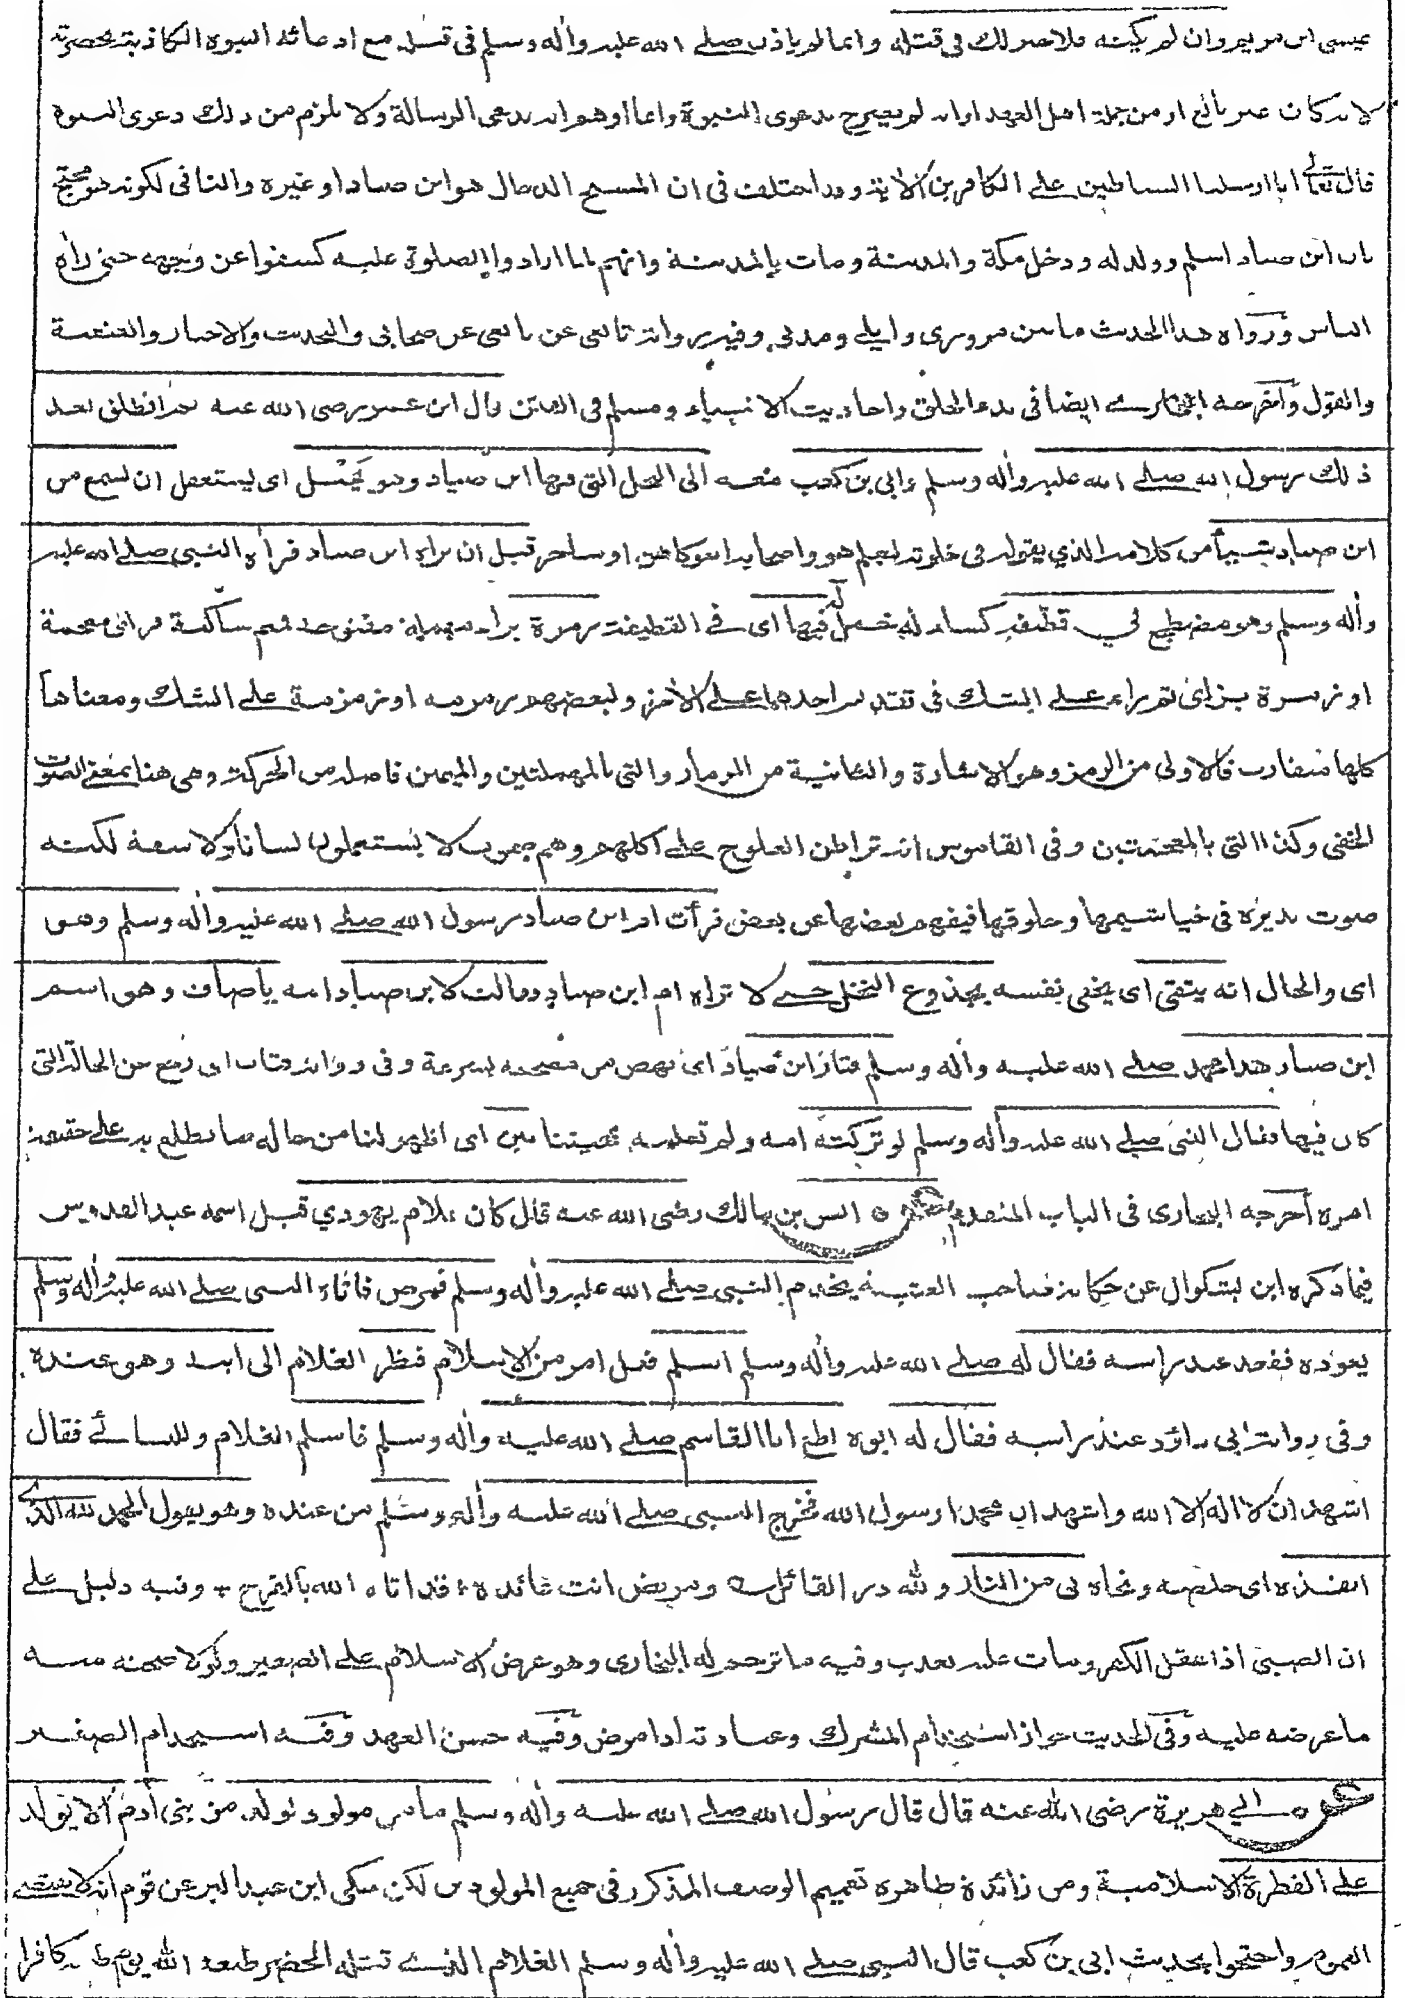 عيسى ابن مريم وان لم يكنه فلا خير لك في قتله وانما لم ياذن صلى الله عليه واله وسلم في قتله مع ادعائه النبوة الكاذبة بحضرته
لانه كان غير بالغ او من جملة اهل العهد او انه لم يصرح بدعوى النبوة وانما اوهم انه يدعى الرسالة ولا يلزم من ذلك دعوى النبوة
قال تعالى انا ارسلنا الشياطين على الكافرين الاية وقد اختلف في ان المسيح الدجال هو ابن صياد او غيره والنافى لكونه هو محتج
بان ابن صياد اسلم وولد له ودخل مكة والمدينة ومات بالمدينة وانهم لما ارادوا الصلوة عليه كشفوا عن وجهه حتى راه
الناس ورواة هذا الحديث ما بين مروزى وايلى ومدنى وفيه رواية تابعى عن تابعى عن صحابى والتحديث والاخبار والعنعنة
والقول واخرجه البخارى ايضا في بدء الخلق واحاديث الانبياء ومسلم في الفتن قال ابن عمر رضى الله عنه ثم انطلق بعد
ذلك رسول الله صلى الله عليه واله وسلم وابى بن كعب معه الى النخل التي فيها ابن صياد وهو يختل اى يستغفل ان يسمع من
ابن صياد شيئا من كلامه الذي يقوله في خلوته ليعلم هو واصحابه اهو كاهن او ساحر قبل ان يراه ابن صياد فراه النبي صلى الله عليه
واله وسلم وهو مضطجع في قطيفة كساء له خمل له فيها اى في القطيفة رمزة براء مهملة مفتوحة فميم ساكنة فزاى معجمة
او زمرة بزاى ثم راء على الشك في تقديم احدهما على الاخر ولبعضهم رمرمة او زمزمة على الشك ومعناها
كلها متقارب فالاولى من الرمز وهو الاشارة والثانية من المزمار والتى بالمهملتين والميمين فاصله من الحركة وهى هنا بمعنى الصوت
الخفى وكذا التى بالمعجمتين وفى القاموس انه تراطن العلوج على اكلهم وهم صموت لا يستعملون لسانا ولا شفة لكنه
صوت تديره في خياشيمها وحلوقها فيفهم بعضها عن بعض فرأت ام ابن صياد رسول الله صلى الله عليه واله وسلم وهو
اى والحال انه يتقى اى يخفى نفسه بجذوع النخل حتى لا تراه ام ابن صياد فقالت لابن صياد امه ياصاف وهو اسم
ابن صياد هذا محمد صلى الله عليه واله وسلم فثار ابن صياد اى نهض من مضجعه بسرعة وفى رواية فثاب اى رجع عن الحالة التى
كان فيها فقال النبى صلى الله عليه واله وسلم لو تركته امه ولم تعلمه بمجيئنا بين اى اظهر لنا من حاله ما نطلع به على حقيقة
امره اخرجه البخارى فى الباب المتقدم عن انس بن مالك رضى الله عنه قال كان غلام يهودي قيل اسمه عبد القدوس
فيما ذكره ابن بشكوال عن حكاية صاحب العتبية يخدم النبى صلى الله عليه واله وسلم فمرض فاتاه النبى صلى الله عليه واله وسلم
يعوده فقعد عند راسه فقال له صلى الله عليه واله وسلم اسلم فعل امر من الاسلام فنظر الغلام الى ابيه وهو عنده
وفى رواية ابى داؤد عند راسه فقال له ابوه اطع ابا القاسم صلى الله عليه واله وسلم فاسلم الغلام وللنسائى فقال
اشهد ان لا اله الا الله واشهد ان محمدا رسول الله فخرج النبى صلى الله عليه واله وسلم من عنده وهو يقول الحمد لله الذى
انقذه اى خلصه ونجاه بى من النار ولله در القائل ومريض انت عائده ؛ قد اتاه الله بالفرج + وفيه دليل على
ان الصبى اذا عقل الكفر ومات عليه يعذب وفيه ما ترجم له البخارى وهو عرض الاسلام على الصغير ولولا صحته منه
ما عرضه عليه وفى الحديث جواز استخدام المشرك وعيادته اذا مرض وفيه حسن العهد وفيه استخدام الصغير
عن ابي هريرة رضى الله عنه قال قال رسول الله صلى الله عليه واله وسلم ما من مولود تولد من بنى ادم الا يولد
على الفطرة الاسلامية ومن زائدة ظاهره تعميم الوصف المذكور في جميع المولودين لكن حكى ابن عبد البر عن قوم انه لا يقتضى
العموم واحتجوا بحديث ابى بن كعب قال النبى صلى الله عليه واله وسلم الغلام الذى قتله الخضر طبعه الله يوم طبعه كافرا